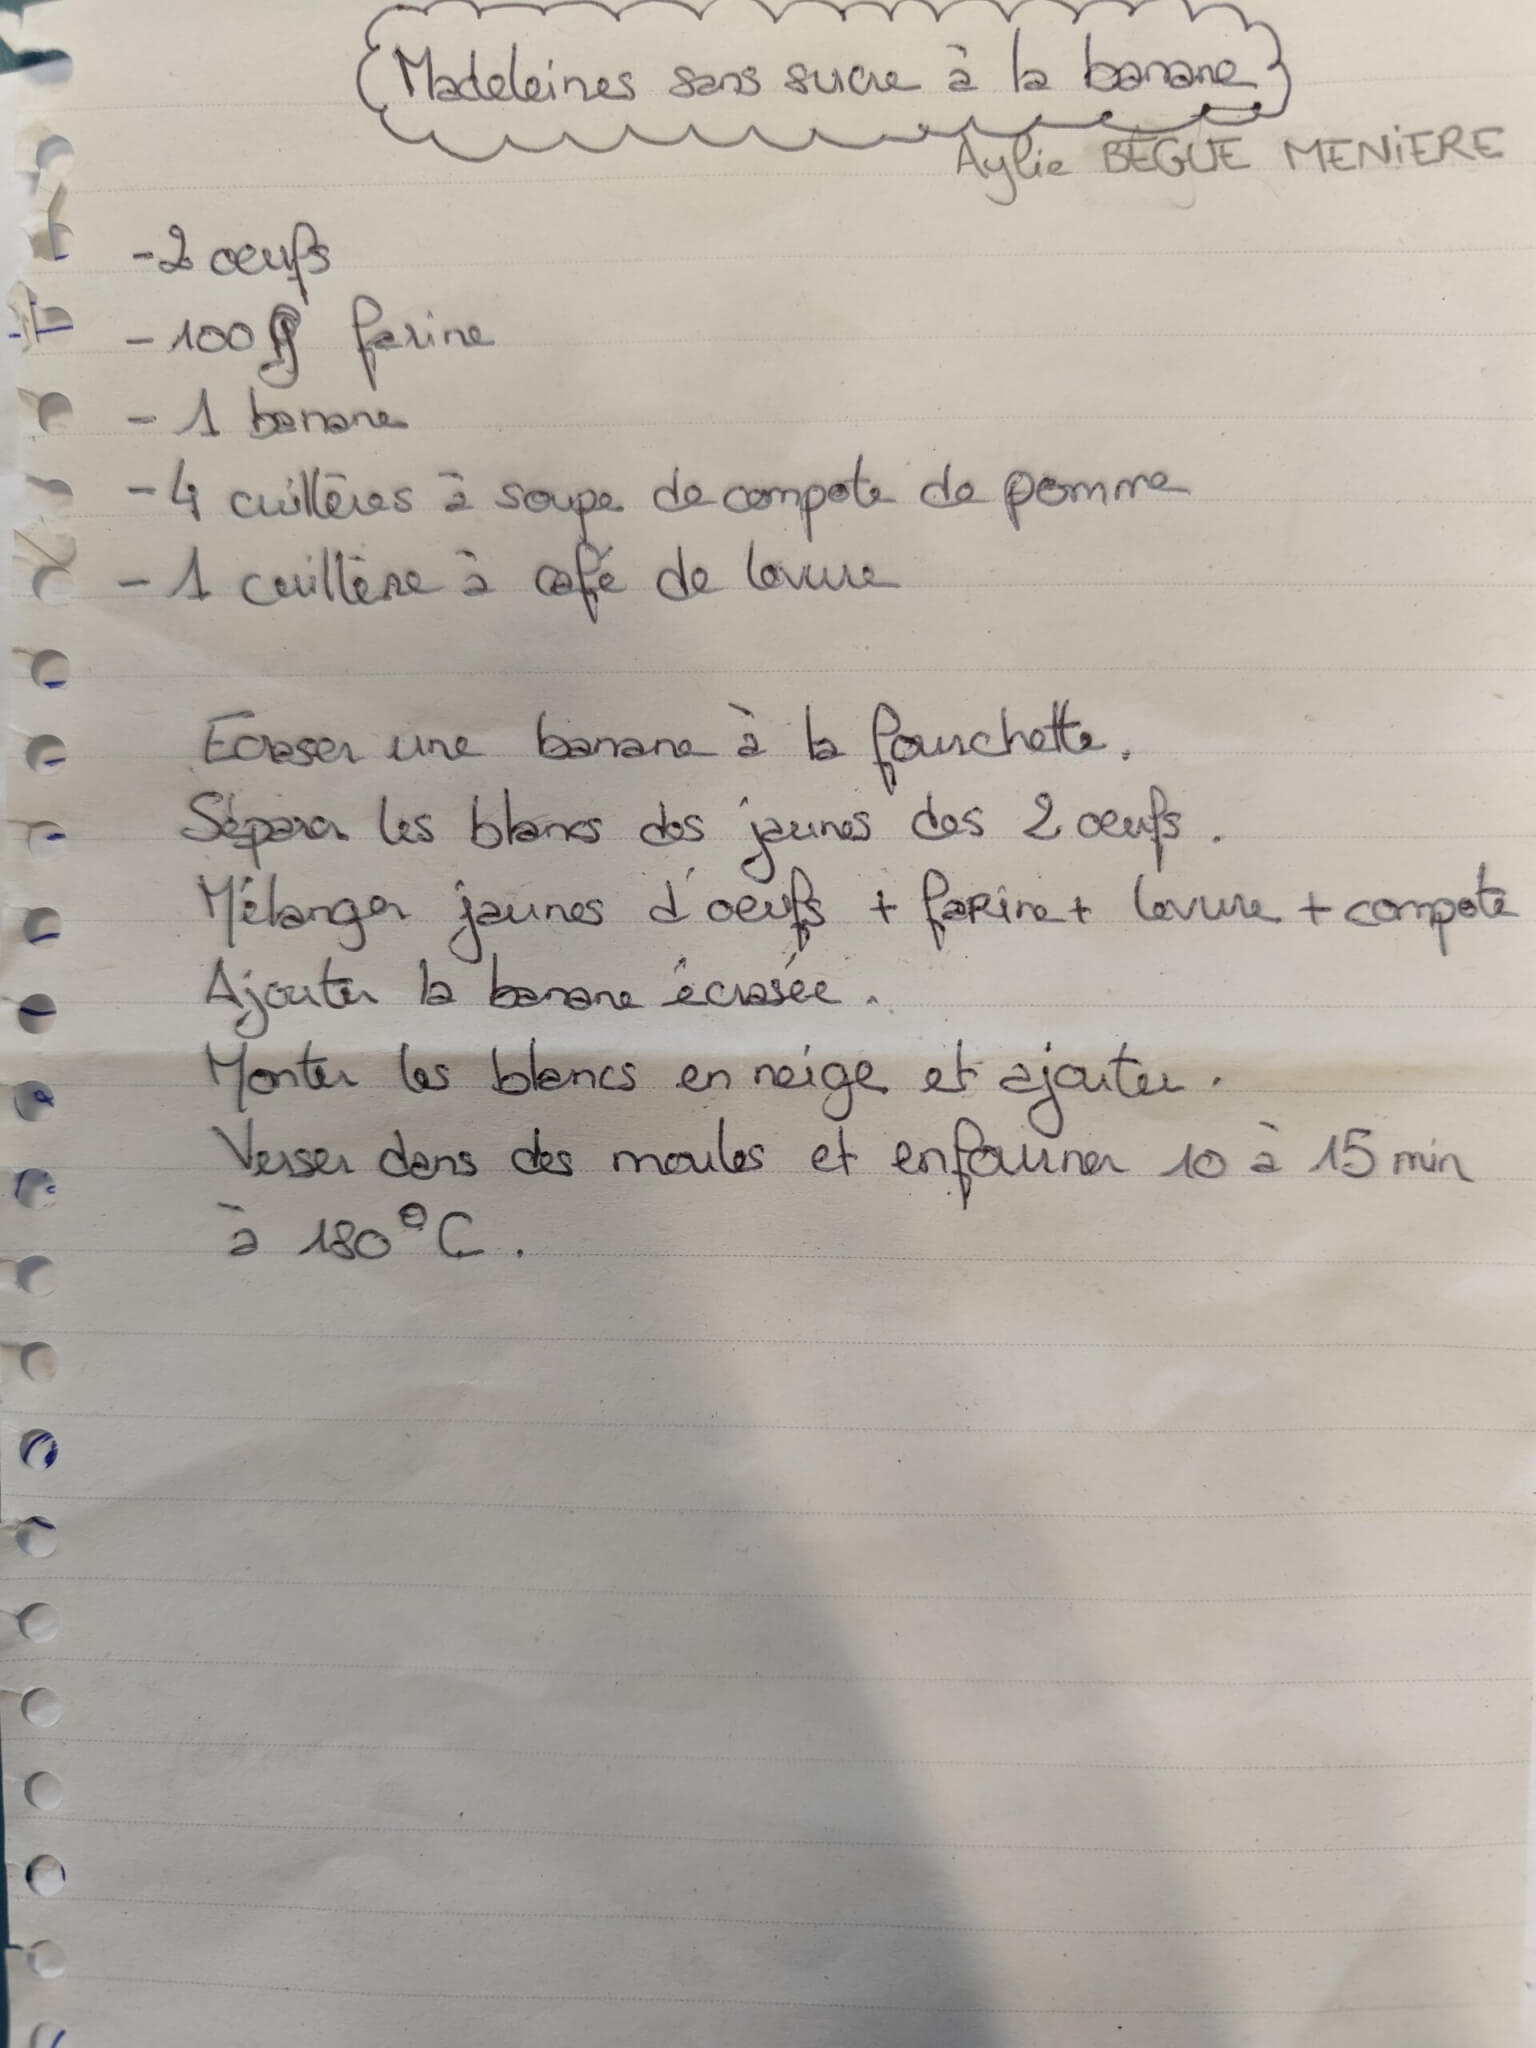 Madeleines sans sucre à la banane
Aylie BEGUE MENIERE
- 2 oeufs
- 100 g farine
- 1 banane
- 4 cuillères à soupe de compote de pomme
- 1 cuillère à café de levure
Ecraser une banane à la fourchette.
Séparer les blancs des jaunes des 2 oeufs.
Mélanger jaunes d'oeufs + farine + levure + compote
Ajouter la banane écrasée.
Monter les blancs en neige et ajouter.
Verser dans des moules et enfourner 10 à 15 min
à 180°C.